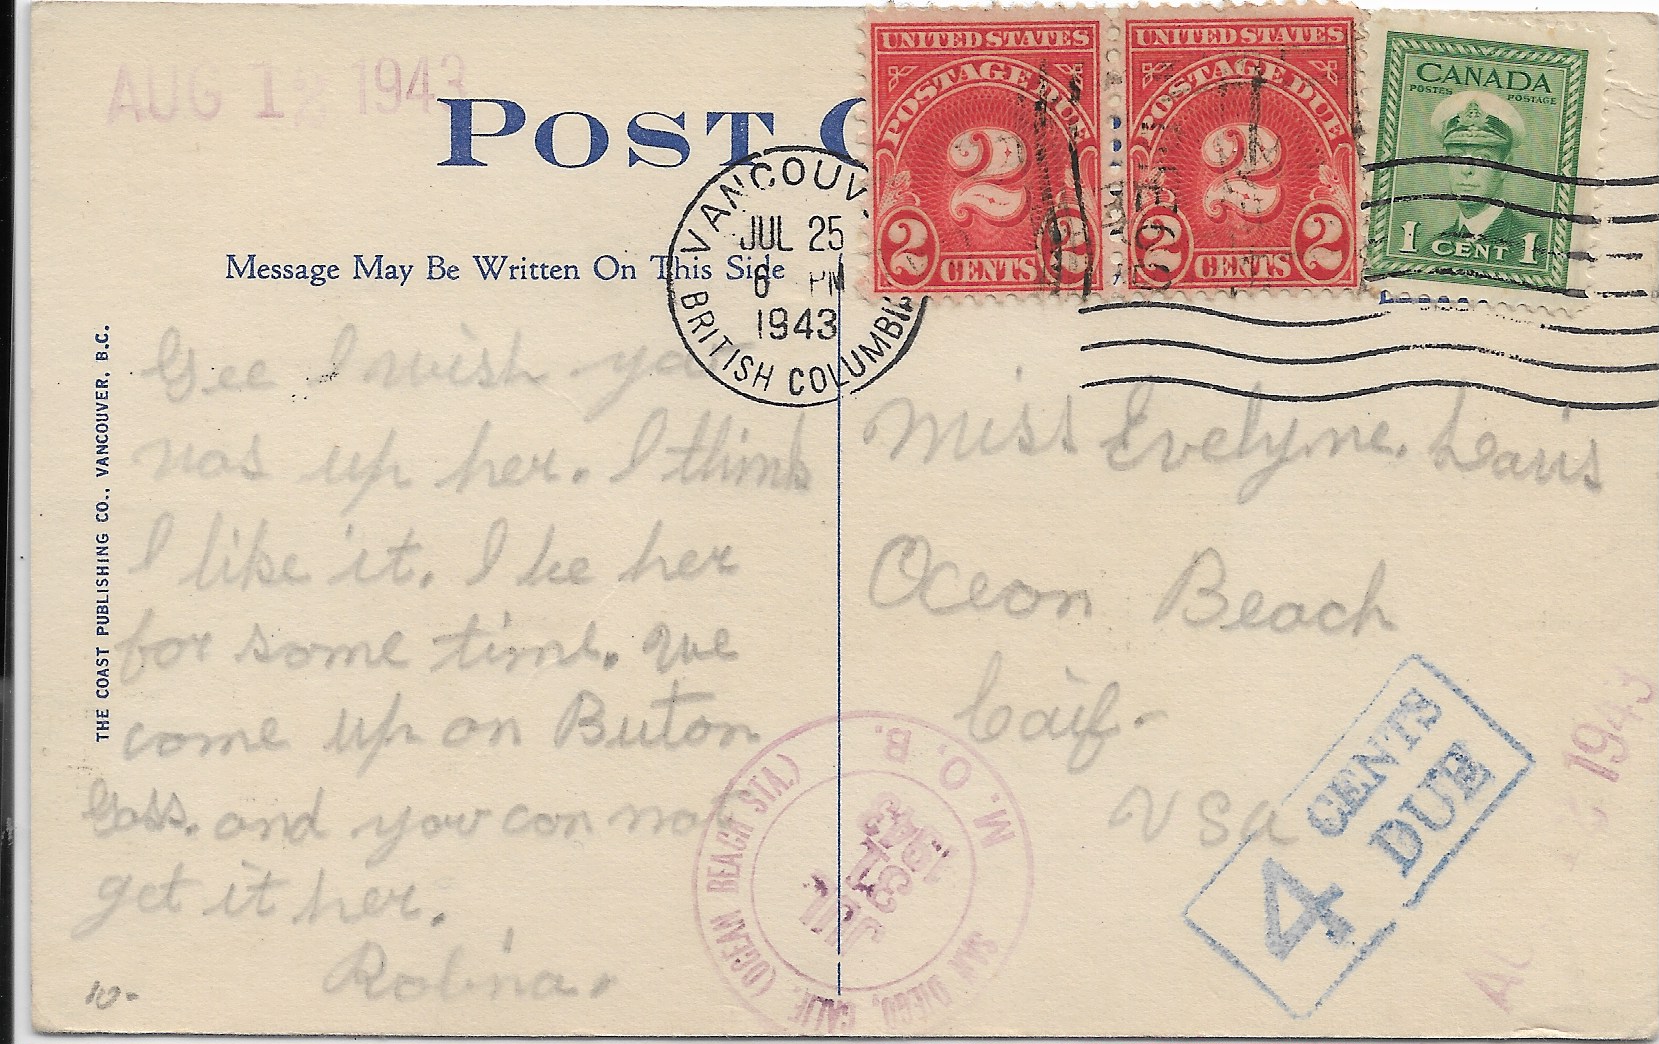 AUG 1 1943
POST C
UNITED STATES
POSTAGE DUE
2
2 CENTS 2
UNITED STATES
POSTAGE DUE
2
2 CENTS 2
CANADA
POSTES POSTAGE
1 CENT 1
VANCOUV
JUL 25
6 PM
1943
BRITISH COLUMBIA
Message May Be Written On This Side
THE COAST PUBLISHING CO., VANCOUVER, B.C.
Gee I wish you
was up her. I think
I like it. I be her
for some time. We
come up on Buton
Gass. and you con not
get it her.
Robina.
10-
Miss Evelyne. Davis
Oceon Beach
Caif-
USA
4 CENTS
DUE
M. O. B.
SAN DIEGO, CALIF. (OCEAN BEACH STA.)
JUL
1943
1943